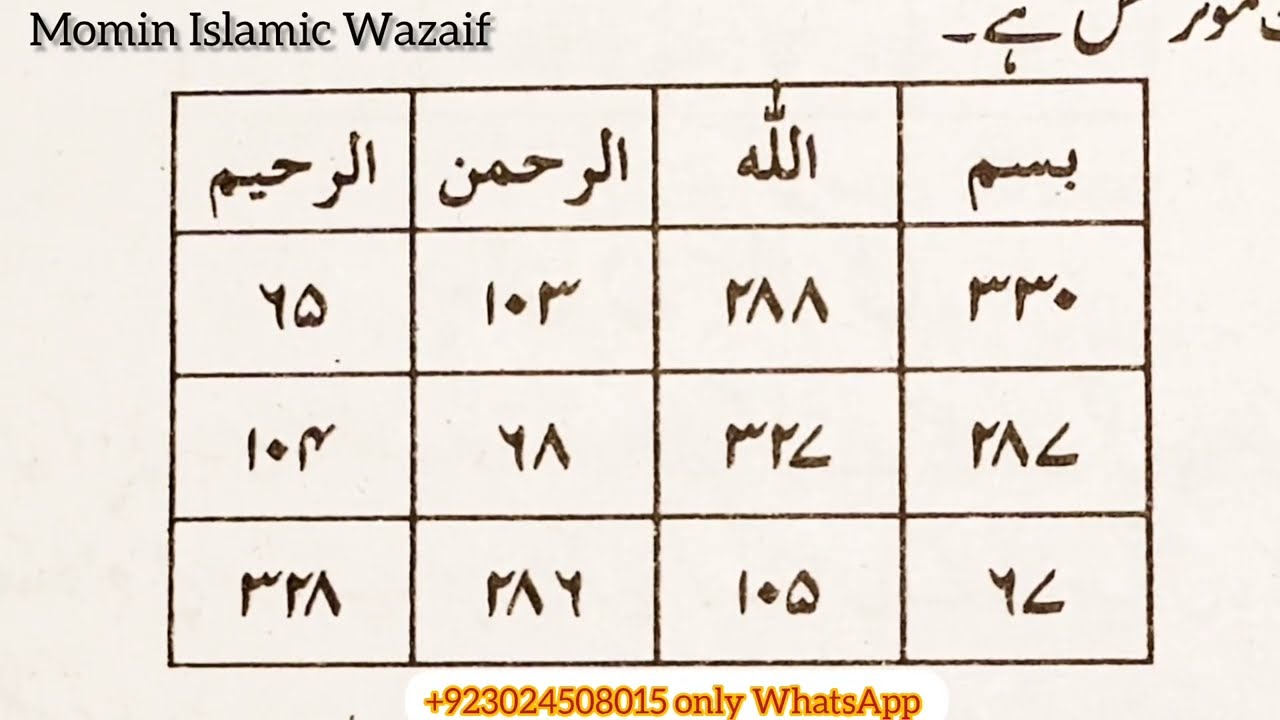 Momin Islamic Wazaif
ہے۔
بسم الله الرحمن الرحیم
۳۳۰ ۲۸۸ ۱۰۳ ۶۵
۲۸۷ ۳۲۷ ۶۸ ۱۰۴
۶۷ ۱۰۵ ۲۸۶ ۳۲۸
+923024508015 only WhatsApp